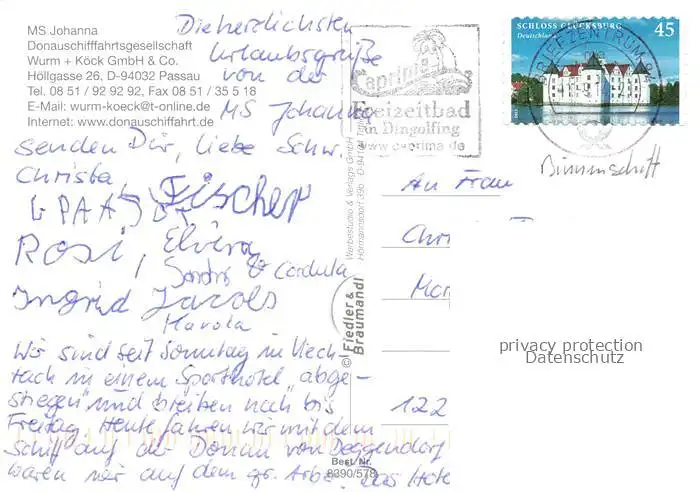 MS Johanna
Donauschifffahrtsgesellschaft
Wurm + Köck GmbH & Co.
Höllgasse 26, D-94032 Passau
Tel. 08 51 / 92 92 92, Fax 08 51 / 35 5 18
E-Mail: wurm-koeck@t-online.de
Internet: www.donauschiffahrt.de
Die herzlichsten
Urlaubsgrüße
von der
MS Johanna
senden Dir, liebe Schw.
Christa,
Fischer
Rosi, Elvira
Cordula
Ingrid Jacobs
Marola
Wir sind seit Sonntag in Viech-
tach in einem Sporthotel „abge-
stiegen" und bleiben noch bis
Freitag. Heute fahren wir mit dem
Schiff auf der Donau von Deggendorf
waren wir auf dem gr. Arber. Das Hote
Caprima
Freizeitbad
in Dingolfing
www.caprima.de
SCHLOSS GLÜCKSBURG
Deutschland
45
BRIEFZENTRUM 94
Binnenschiff
An Frau
Chri
122
Werbestudio & Verlags GmbH
Hörmannsdorf 39b
© Fiedler &
Braumandl
Best. Nr.
8390/578
privacy protection
Datenschutz